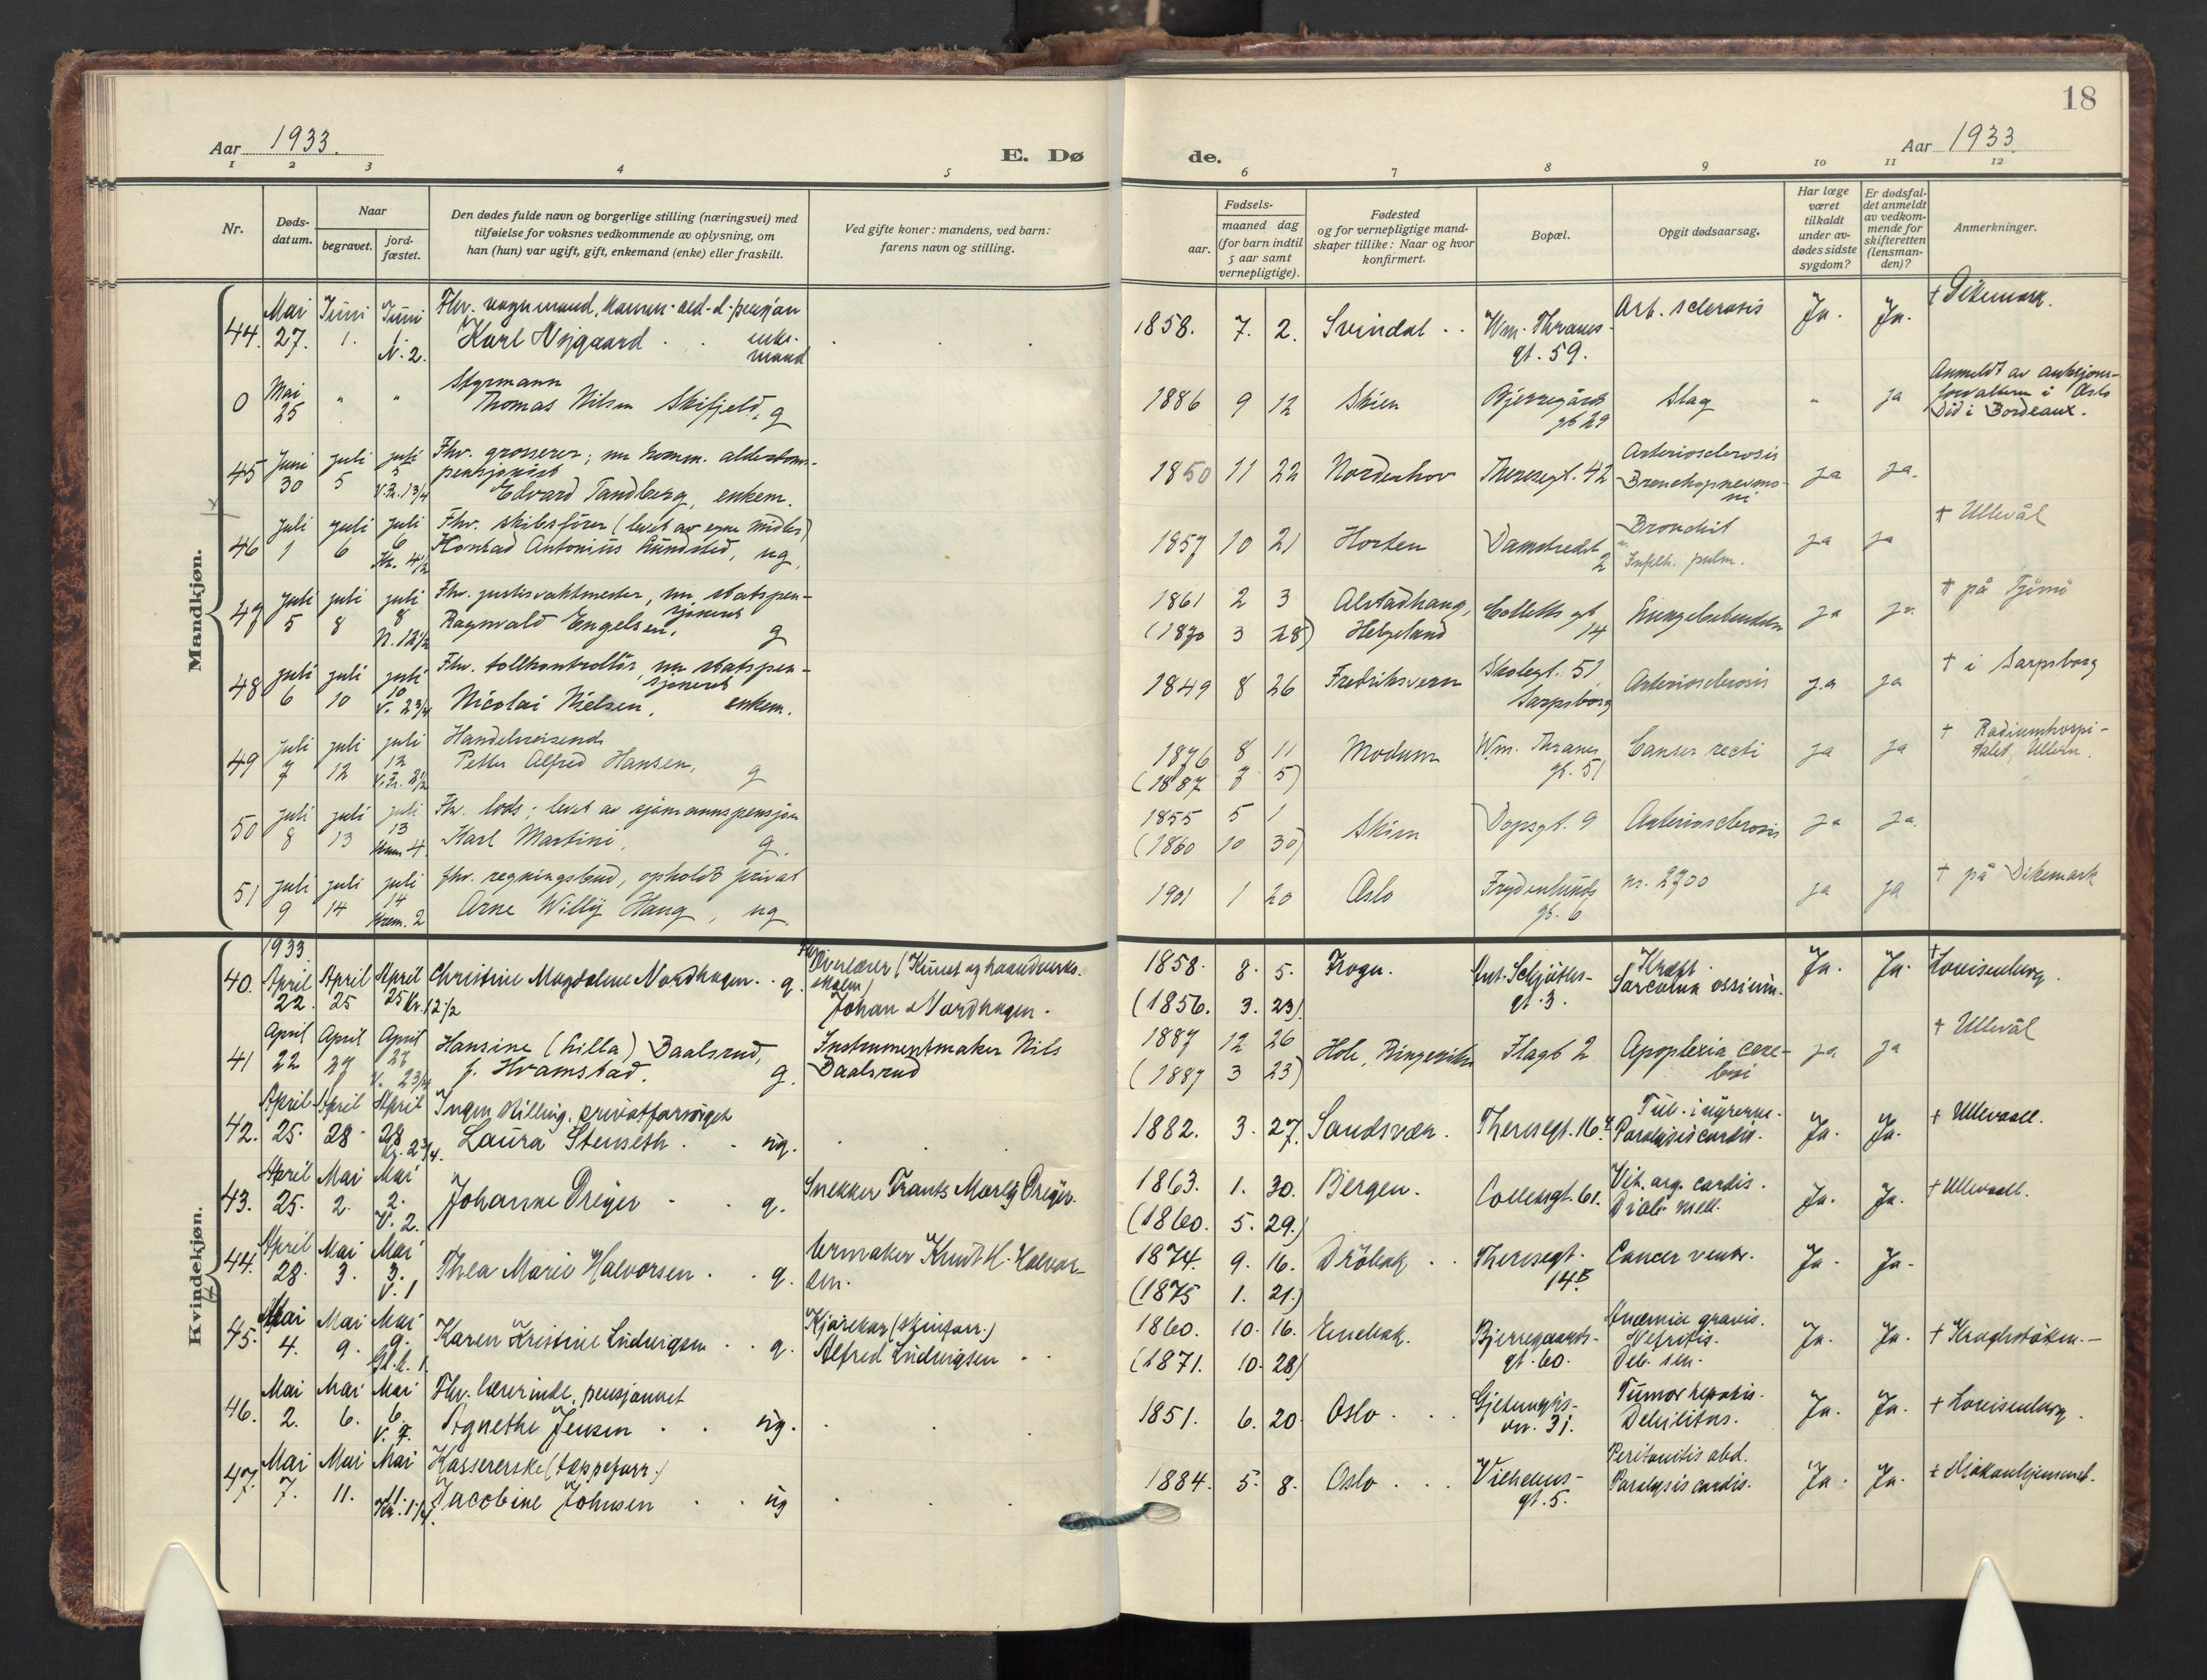 18
Aar 1933.
E. Dø
de.
Aar 1933.
1 2 3 4 5 6 7 8 9 10 11 12
Nr.
Døds-
datum.
Naar
begravet.
jord-
fæstet.
Den dødes fulde navn og borgerlige stilling (næringsvei) med
tilføielse for voksnes vedkommende av oplysning, om
han (hun) var ugift, gift, enkemand (enke) eller fraskilt.
Ved gifte koner: mandens, ved barn:
farens navn og stilling.
Fødsels-
aar.
maaned dag
(for barn indtil
5 aar samt
vernepligtige).
Fødested
og for vernepligtige mand-
skaper tillike: Naar og hvor
konfirmert.
Bopæl.
Opgit dødsaarsag.
Har læge
været
tilkaldt
under av-
dødes sidste
sygdom?
Er dødsfal-
det anmeldt
av vedkom-
mende for
skifteretten
(lensman-
den)?
Anmerkninger.
Mandkjøn.
44. Mai 27. Juni 1. Juni 1. N. 2.
Fhv. vognmand,
Karl Nygaard . . enke-
mand
1858. 7. 2. Svindal . . Wm. Thranes-
gt. 59.
Art. sclerosis Ja. Ja. + Dikemark.
0 Mai 25 " "
Styrmann
Thomas Nilsen Skifjeld, g
1886 9 12 Skien Bjerregårds
gt 29
Slag " ja
Anmeldt av auksjons-
forvalteren i Oslo
Død i Bordeaux.
45 Juni 30 juli 5 juli 5 V.Fr. 1 3/4
Fhv. grosserer; nu komm. alderstrms-
pensjonist
Edvard Tandberg, enkem.
1850 11 22 Norderhov Theresegt. 42
Arteriosclerosis
Bronchopneumo-
ni
ja ja.
46 Juli 1 juli 6 juli 6 Kr. 4 1/2
Fhv. skibsfører (levet av egne midler)
Konrad Antonius Lundsted, ug.
1857 10 21 Horten Damstredet
2
Bronchit
Infilt. pulm.
ja ja + Ullevål
47 Juli 5 juli 8 juli 8 N. 12 1/2
Fhv. justisvaktmester, nu statspen-
sjonert
Ragnvald Engelsen, g
1861 2 3
(1870 3 28)
Alstadhaug,
Helgeland
Colletts gt
14
Lungebetendelse ja ja + på Tjømø
48 juli 6 juli 10 juli 10 V. 2 3/4
Fhv. tollkontrollør, nu statspen-
sjonert
Nicolai Nielsen, enkem.
1849 8 26 Fredriksvern Skolegt. 51
Sarpsborg
Arteriosclerosis ja ja + i Sarpsborg
49 juli 7 juli 12 juli 12 V.Fr. 2 1/2
Handelsreisende
Petter Alfred Hansen, g
1876 8 11
(1887 7 5)
Modum Wm. Thranes
gt. 51
Cancer recti ja ja + Radiumhospi-
talet, Ullern.
50 juli 8 juli 13 juli 13 Krem 4.
Fhv. lods; levet av sjømannspensjon
Karl Martini, g.
1855 5 1
(1860 10 30)
Skien Dopsgt. 9 Arteriosclerosis ja ja.
51 juli 9 juli 14 juli 14 Krem. 2
fhv. regningsbud, opholdt privat
Arne Willy Haug, ug.
1901 1 20 Oslo Frydenlunds
gt. 6
nr. 2700 ja ja + på Dikemark
Kvindekjøn.
1933.
40. April 22. April 25 April 25 Kr. 12 1/2
Christine Magdalene Nordhagen . . g.
Fhv.
Overlærer (Kunst og haandverks-
skolen)
Johan Nordhagen.
1858. 8. 5.
(1856. 3. 23)
Frogn. Ant. Schjøths-
gt. 3.
Kræft.
Sarcoma ossium.
Ja. Ja. + Lovisenberg.
41 April 22 April 27 April 27 V. 2 3/4
Hansine (Lilla) Baalsrud,
f. Hvamstad. g.
Instrumentmaker Nils
Baalsrud
1887 12 26
(1887 3 23)
Hole, Ringerike Flagt 2 Apoplexia cere-
bri
ja ja + Ullevål
42. April 25. April 28 April 28 Kr. 2 3/4.
Ingen stilling, privat forsørget
Laura Stenseth . . ug.
1882. 3. 27. Sandsvær. Theresegt. 16
Tub. i nyrerne.
Paralysis cardis.
Ja. Ja. + Ullevaall.
43. April 25. Mai 2. Mai 2. V. 2.
Johanne Dreyer . . g.
Snekker Frants Marlig Dreyer.
1863. 1. 30.
(1860. 5. 29.)
Bergen. Collettsgt. 61.
Vit. org. cordis.
Diab. mell.
Ja. Ja. + Ullevaall.
44. April 28. Mai 3. Mai 3. V. 1
Thea Marie Halvorsen . . g.
Urmaker Knut H. Halvor-
sen.
1874. 9. 16.
(1875 1. 21.)
Drøbak . . Theresegt.
14 B
Cancer ventr. Ja. Ja.
45. Mai 4. Mai 9. Mai 9.
Karen Kristine Ludvigsen . . g.
Kjørekar (skinforr.)
Alfred Ludvigsen . .
1860. 10. 16.
(1871. 10. 28)
Enebak. Bjerregaards-
gt. 60.
Anæmia gravis.
Nefritis.
Deb. sen.
Ja. Ja. + Kroghstøtten.
46. Mai 2. Mai 6. Mai 6. V. 7.
Fhv. lærerinde, pensjonert
Agnethe Jensen . . ug.
1851. 6. 20 Oslo . . . Gjetemyrs-
vn. 31.
Tumor hepatis.
Debilitas.
Ja. Ja. + Lovisenberg.
47. Mai 7. Mai 11. Mai 11. Kr. 1 1/4.
Kassererske (tappeforr.)
Jacobine Johnsen . . ug
1884. 5. 8. Oslo . . . Vilhelms-
gt. 5.
Peritonitis abd.
Paralysis cordis.
Ja. Ja. + Diakonhjemmet.